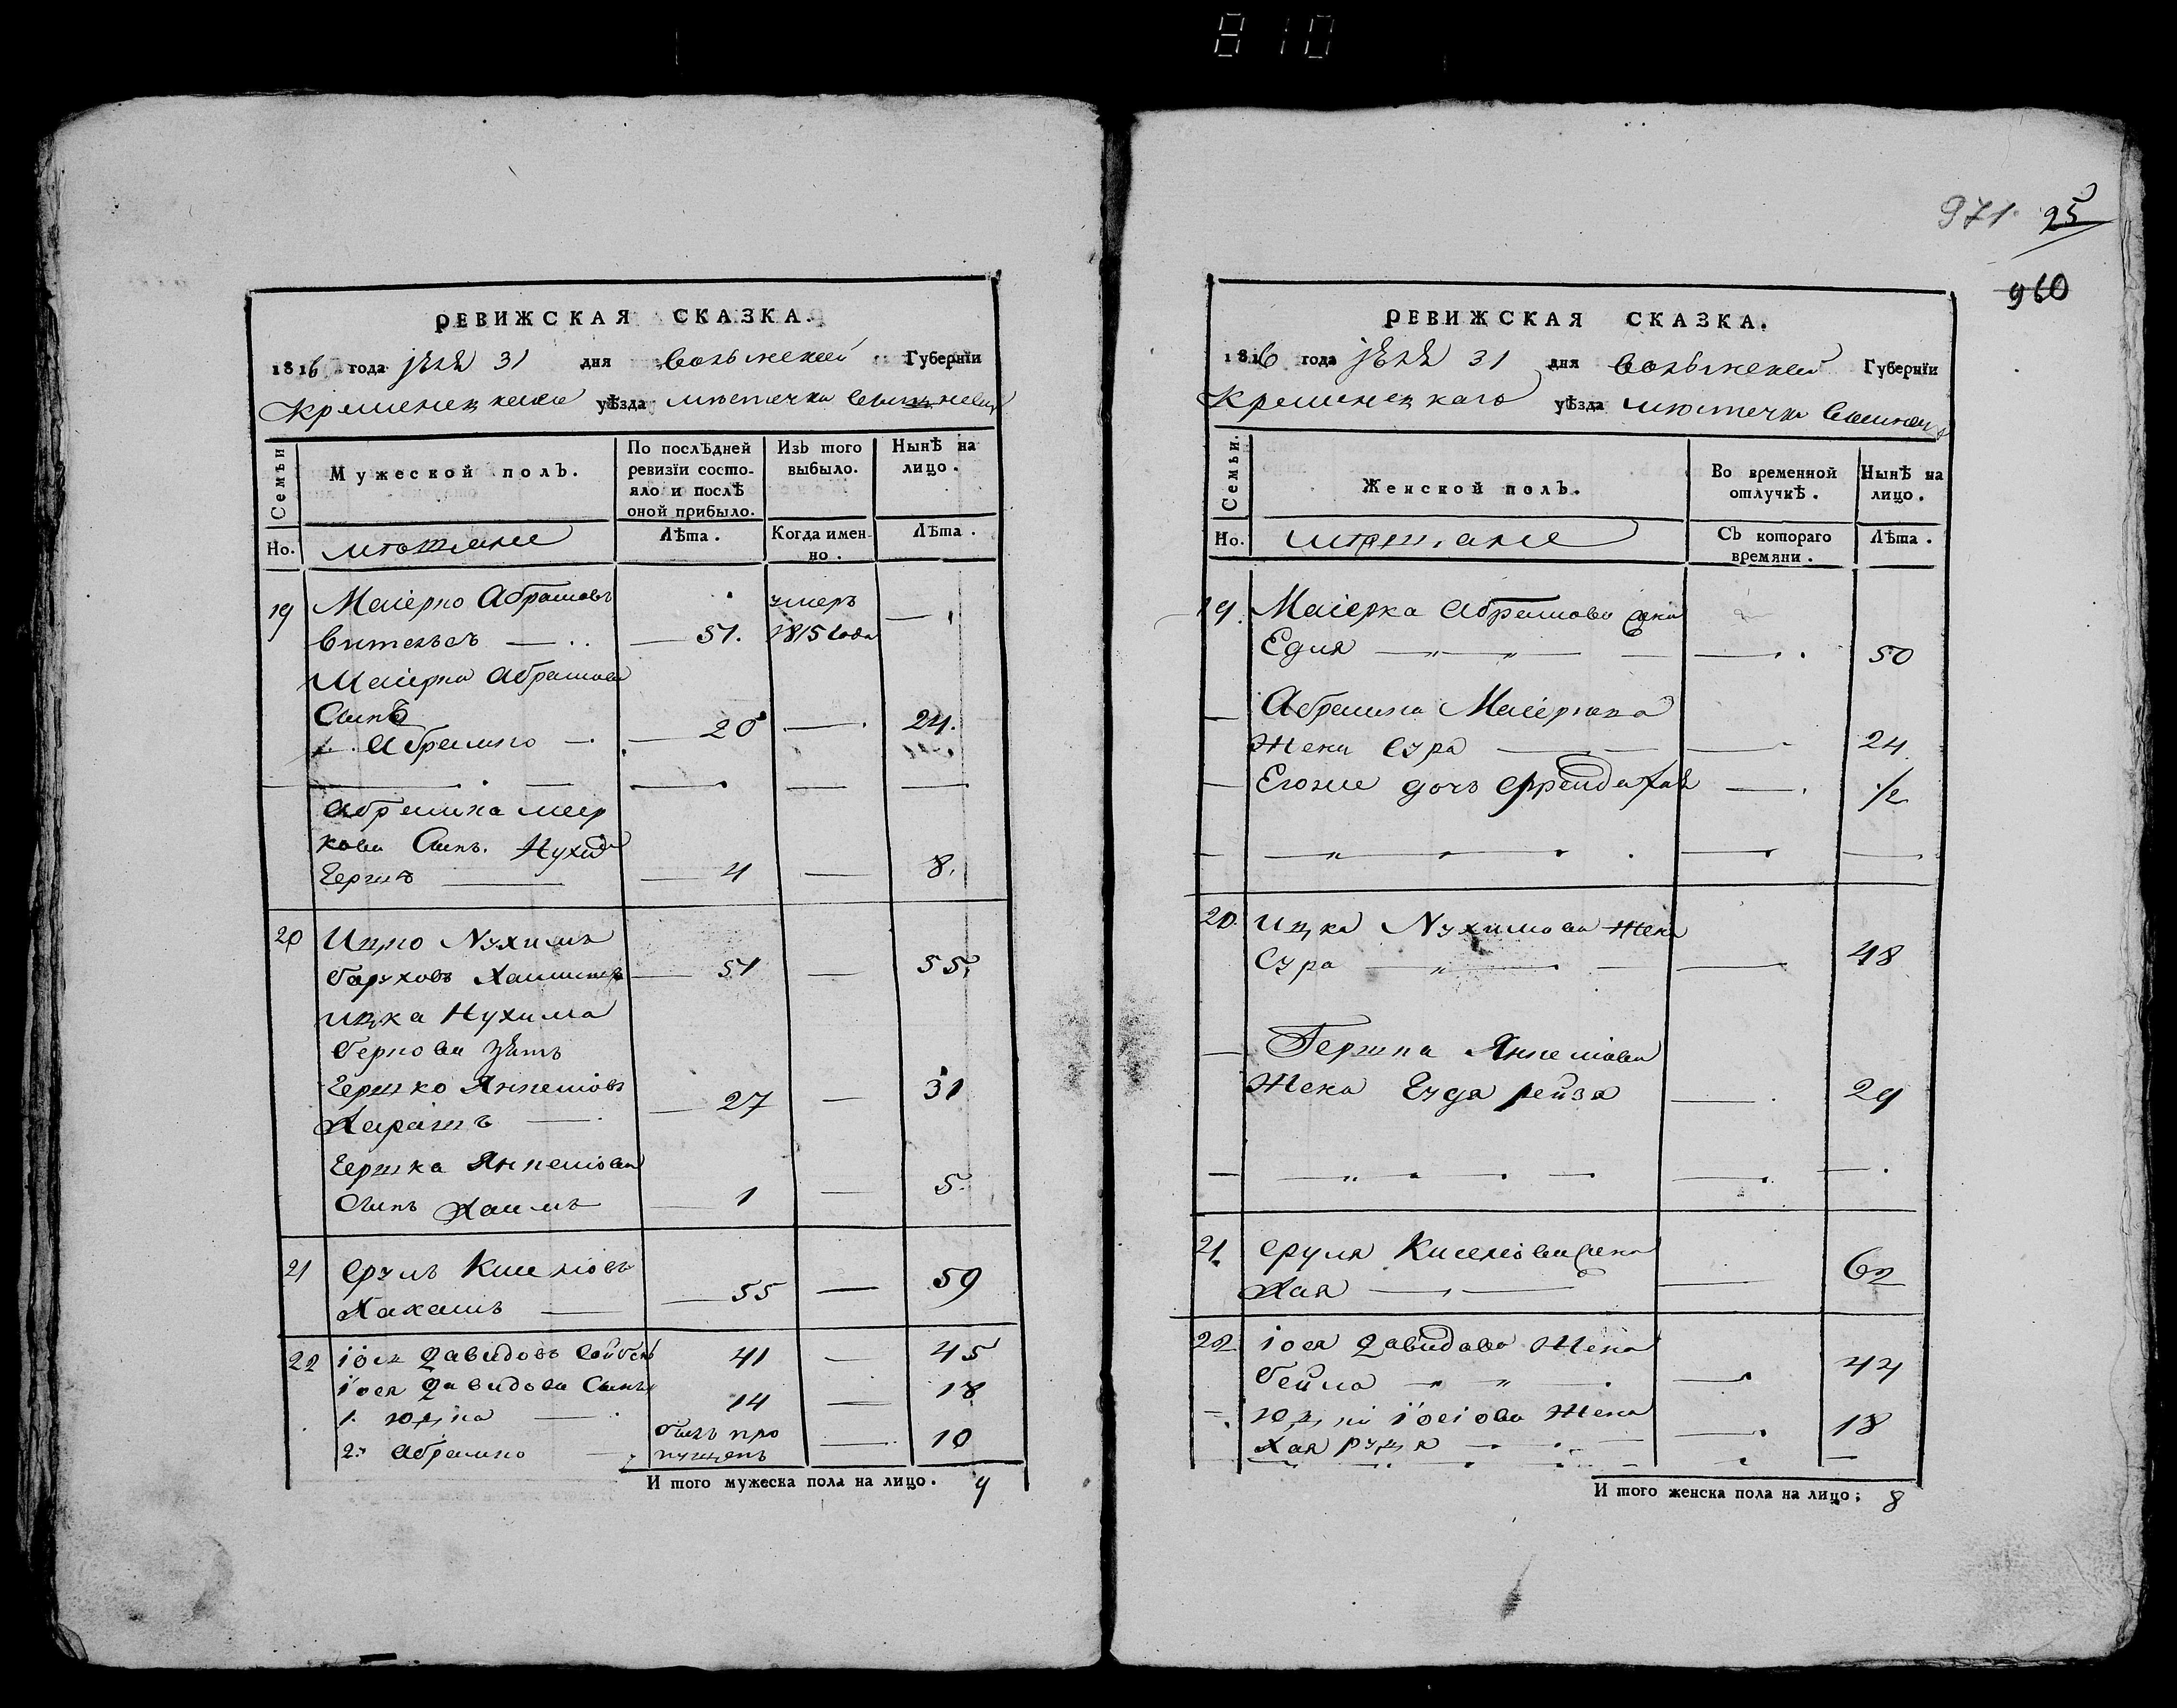 810
971. 25
960
РЕВИЖСКАЯ СКАЗКА.
1816 года 31 дня Волынской Губернїи
Кременецкаго уѣзда местечка
Семьи
Мужеской полЪ.
По послѣдней ревизїи состо-
яло и послѣ
оной прибыло.
ИзЬ того
выбыло.
НынѢ на
лицо.
Но.
мещане
Лѣта.
Когда имен-
но.
Лѣта.
19 Маіерко Абрамовъ умеръ
Вительсъ — 51. 1815 года —
Маіерка Абрамова
Сынъ
1. Абрамко — 20 — 24.
Абрамка Меер
кова Сынъ. Нухим
Гершъ — 4 — 8.
20 Ицко Нухимъ
51 — 55.
Ицка Нухима
Беркова Зять
Гершко Янкеліовъ
27 — 31
Гершка Янкеліова
Сынъ Хаимъ 1 — 5.
21 Сруль Киселіовъ
55 — 59
22 іось Давидовъ 41 — 45
іося Давидова Сынъя
1. юдка — 14 — 18
2. Абрамко — былъ про
пущенъ — 10
И того мужеска пола на лицо. 9
РЕВИЖСКАЯ СКАЗКА.
1816 года 31 дня Волынской Губернїи
Кременецкаго уѣзда местечка
Семьи.
Женской полЪ.
Во временной
отлучкѢ.
НынѢ на
лицо.
Но.
мещане
СЪ котораго
времяни.
Лѣта.
19. Маіерка Абрамова жена
Едля — 50
Абрамка Маіеркова
Жена Сура — 24
Егоже дочь Фрейда Хая — 1/2
20. Ицка Нухимова Жена
Сура — 48
Гершка Янкеліова
Жена Гудя рейзя — 29
21. Сруля Киселіова жена
Хая — 62
22 іося Давидова Жена
Бейла — 44
юдки іосіова Жена
Хая — 18
И того женска пола на лицо; 8